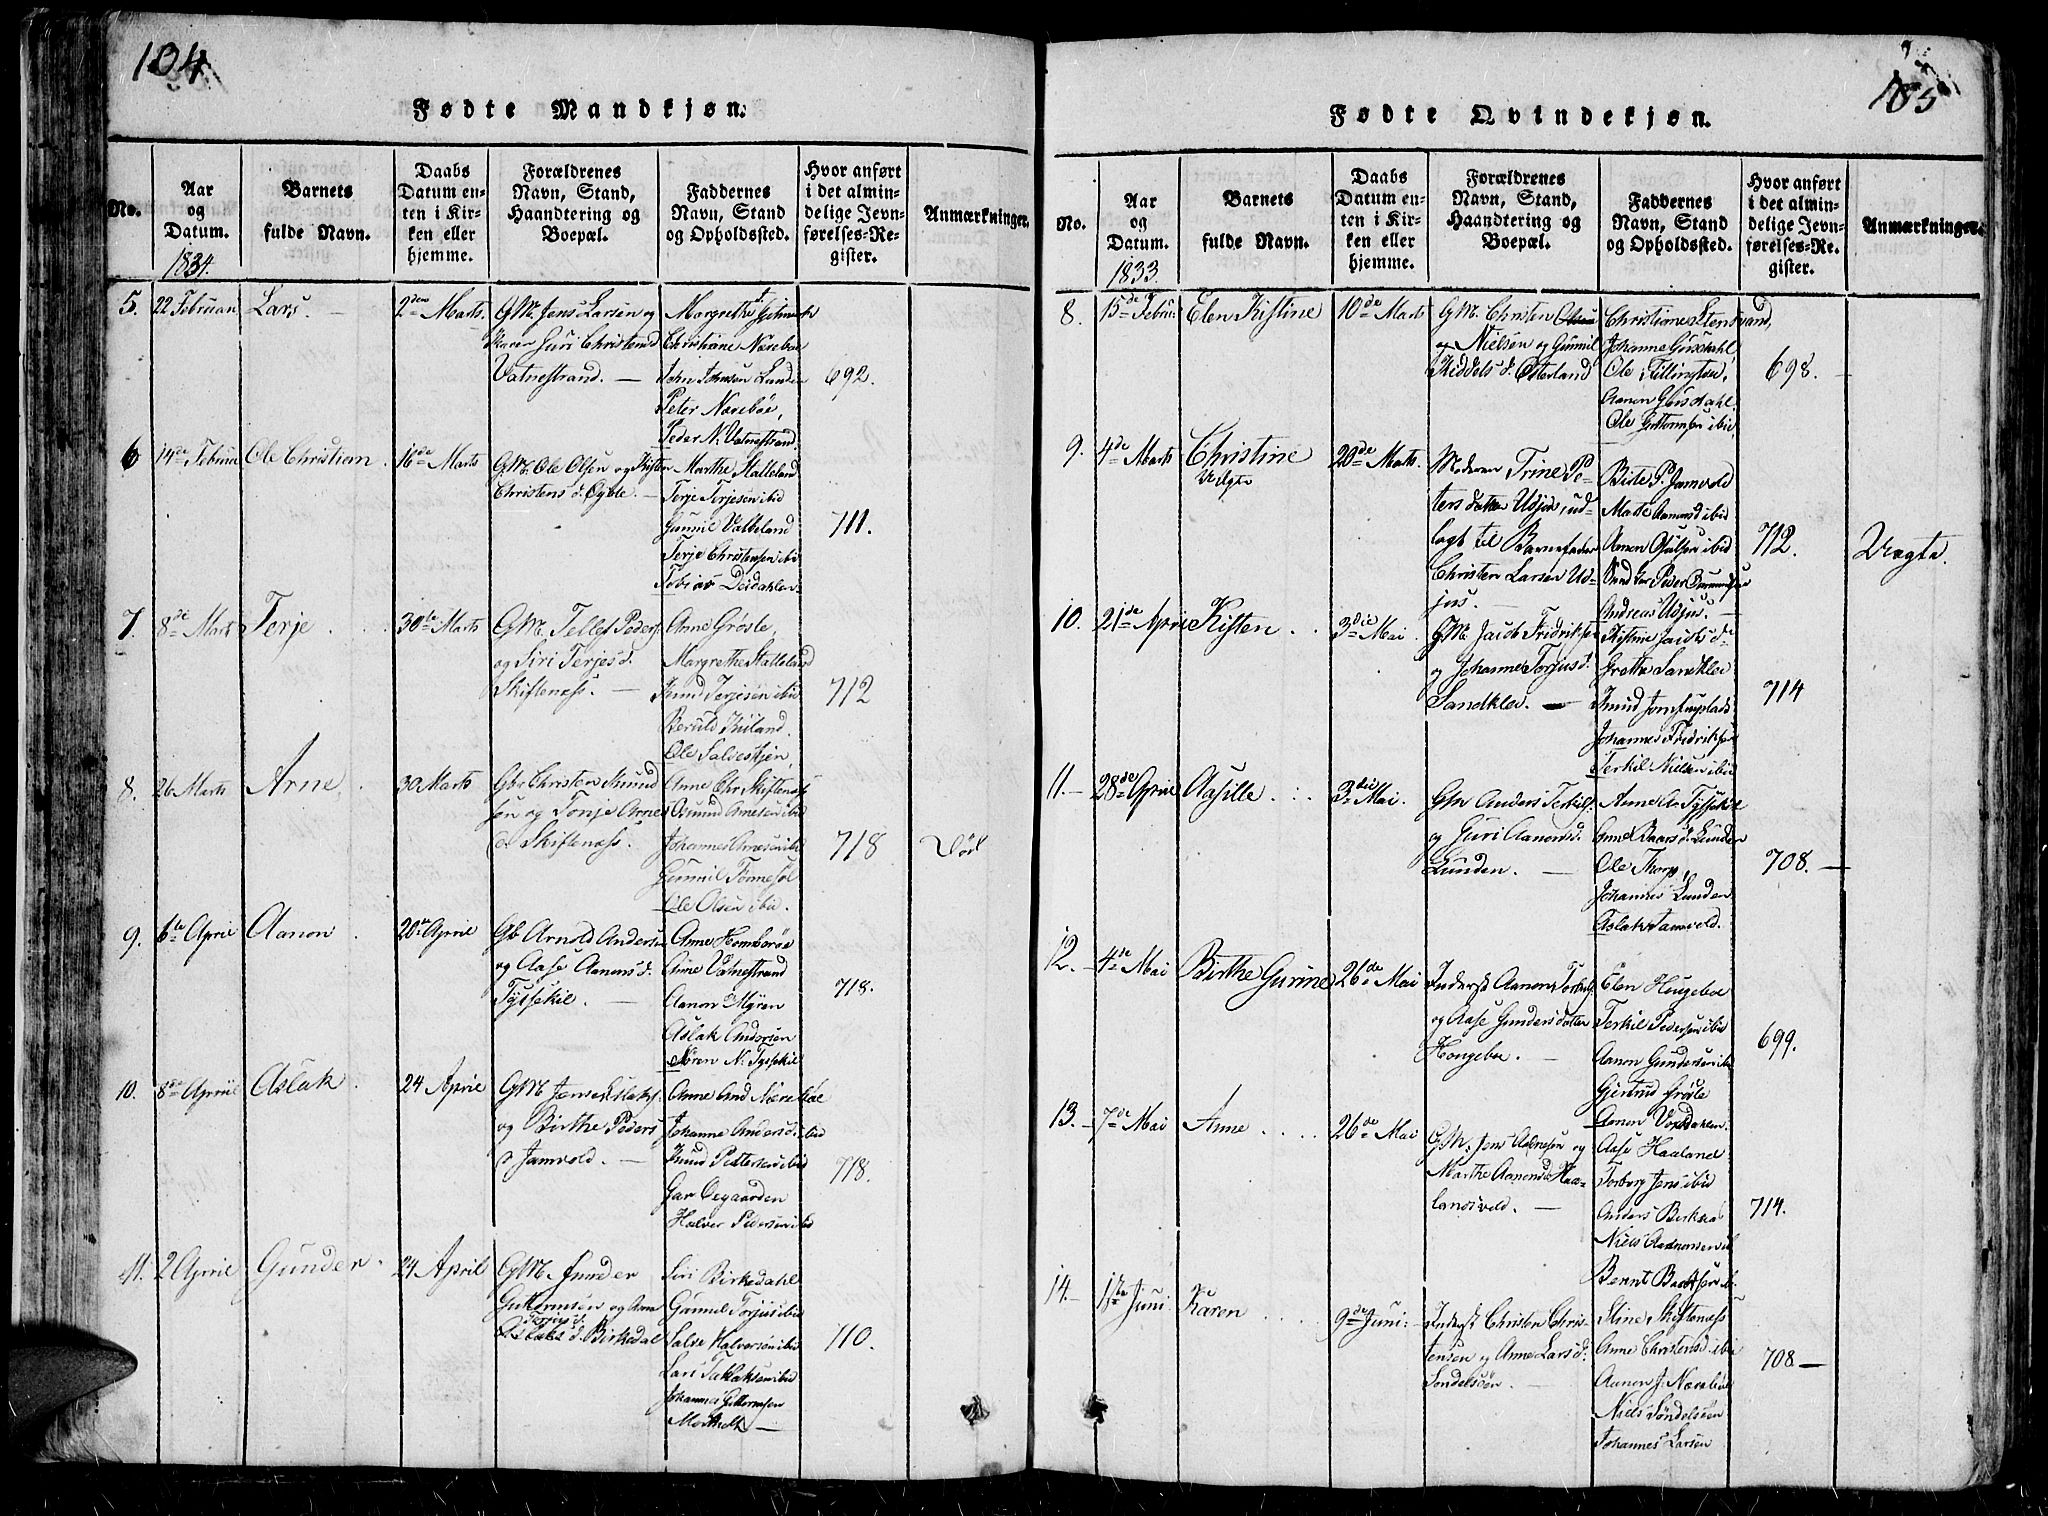 104
Fødte Mandkjøn.
No.
Aar og Datum.
Barnets fulde Navn.
Daabs Datum enten i Kirken eller hjemme.
Forældrenes Navn, Stand, Haandtering og Boepæl.
Faddernes Navn, Stand og Opholdssted.
Hvor anført i det almindelige Jevnførelses-Register.
Anmærkninger.
1834.
5. 22 Februari Lars.
2den Marts.
G.M. Jens Larsen og
Guri Christensd
Vatnestrand.
Margrethe
Christiane Næreboe
John Johnsen Lunden
Peter Næreboe,
Peder N. Vatnestrand.
692.
6 14de Februar Ole Christian.
16de Marts
G.M. Ole Olsen og Kisten
Christens d.
Marthe Stalleland
Terje Terjesen ibid
Gunnil Valleland
Terje Christensen ibid
Tobias Deidahlen
711.
7. 8de Marts Terje
30te Marts
G.M. Tellef Peders.
og Siri Terjes d.
Skiftenæss.
Anne Grøsle,
Margrethe Stalleland
Knud Terjesen ibid
Beruld
Ole
712
8. 26 Marts Arne
30 Marts
Gbr Christen Knud
sen og Tonje Arnes
d. Skiftenæss.
Anne Chr Skiftenæs
Asmund Arnesen ibid
Johannes Arnesen ibid
Gunnil Tønnesøl
Ole Olsen ibid.
718
Død
9. 6te April Aanon
20de April
Gb. Arnold Anders
og Aase Aanons d.
Tyssekil.
Anne Homborøe
Anne Vatnestrand
Aanon Myren
Aslak Andersen
Søren N. Tyssekil
718.
10. 8de April Aslak
24 April
GM Jens Aslaks.
og Birthe Peders
d Jamvold.
Anne And Nærebøe
Johanne Anders d. ibid
Knud Pettersen ibid
Gar Oegaarden
Halvor Pedersen ibid
718.
11. 2 April Gunder.
24 April
GM. Gunder
Guttormsen og
Terjes d.
Aslaks d. Birkedal
Siri Birkedahl
Gunnel Torjus ibid
Salve Halvorsen ibid
Lars ibid
Johannes Guttormsen
710.
105
Fødte Qvindekjøn.
No.
Aar og Datum.
Barnets fulde Navn.
Daabs Datum enten i Kirken eller hjemme.
Forældrenes Navn, Stand, Haandtering og Boepæl.
Faddernes Navn, Stand og Opholdssted.
Hvor anført i det almindelige Jevnførelses-Register.
Anmærkninger.
1833.
8. 15de Februar Elen Kistine
10de Marts
G.M. Christen
Nielsen og Gunnil
Kiddels d. Østerland
Christiane Stensvand,
Johanne Gusdahl
Ole Tellingtøn,
Aanon Gusdahl.
Ole Guttormsen ibid.
698.
9. 4de Marts Christine
Uægte
20de Marts.
Moderen Trine Pe-
ters datter Udjus, ud-
lagt til Barnefader
Christen Larsen Ud-
jus.
Birte P. Jamvold
Marte Aamunds ibid
Aanon ibid
Peder
Andreas Udjus.
712.
Uægte.
10. 21de April Kisten
3die Mai
G.M. Jacob Fridriksen
og Johanne Torjus d.
Sandklev.
Kistine Jacobs d.
Grethe Sandklev
Knud Jomfruplads
Johannes Fridriksen
Terkil Nielsen ibid
714
11. 28de April Aasille
3die Mai.
Gm Anders Terkils.
og Guri Aanons d.
Lunden.
Anne A Tyssekil
Anne Baars d. Lunden
Ole Thorp,
Johannes Lunden
Aslak Jamvold.
708.
12. 4de Mai Birthe Gurine
26de Mai
Inderst Aanon Terkils.
og Aase Gunders datter
Hongeboe.
Elen Hongeboe
Terkil Pedersen ibid
Aanon Gundersen ibid
Gjertrud Grøsle
Aanon
699.
13. 7de Mai Anne
26de Mai
G.M. Jens Aadnesen og
Marthe Aanonsd. Haa-
landsvold.
Aase Haaland
Torborg Jens ibid
Anders Birkeda
Niels Aadnonsen ibid
Bennt ib.
714.
14. 1ste Juni Karen
9de Juni.
Inderst Christen Chris-
tensen og Anne Lars d.
Søndelsøen.
Stine Skiftenæss
Anne Christens d ibid
Aanon J. Nærebøe
Niels Søndelsøen
Johannes Larsen
708